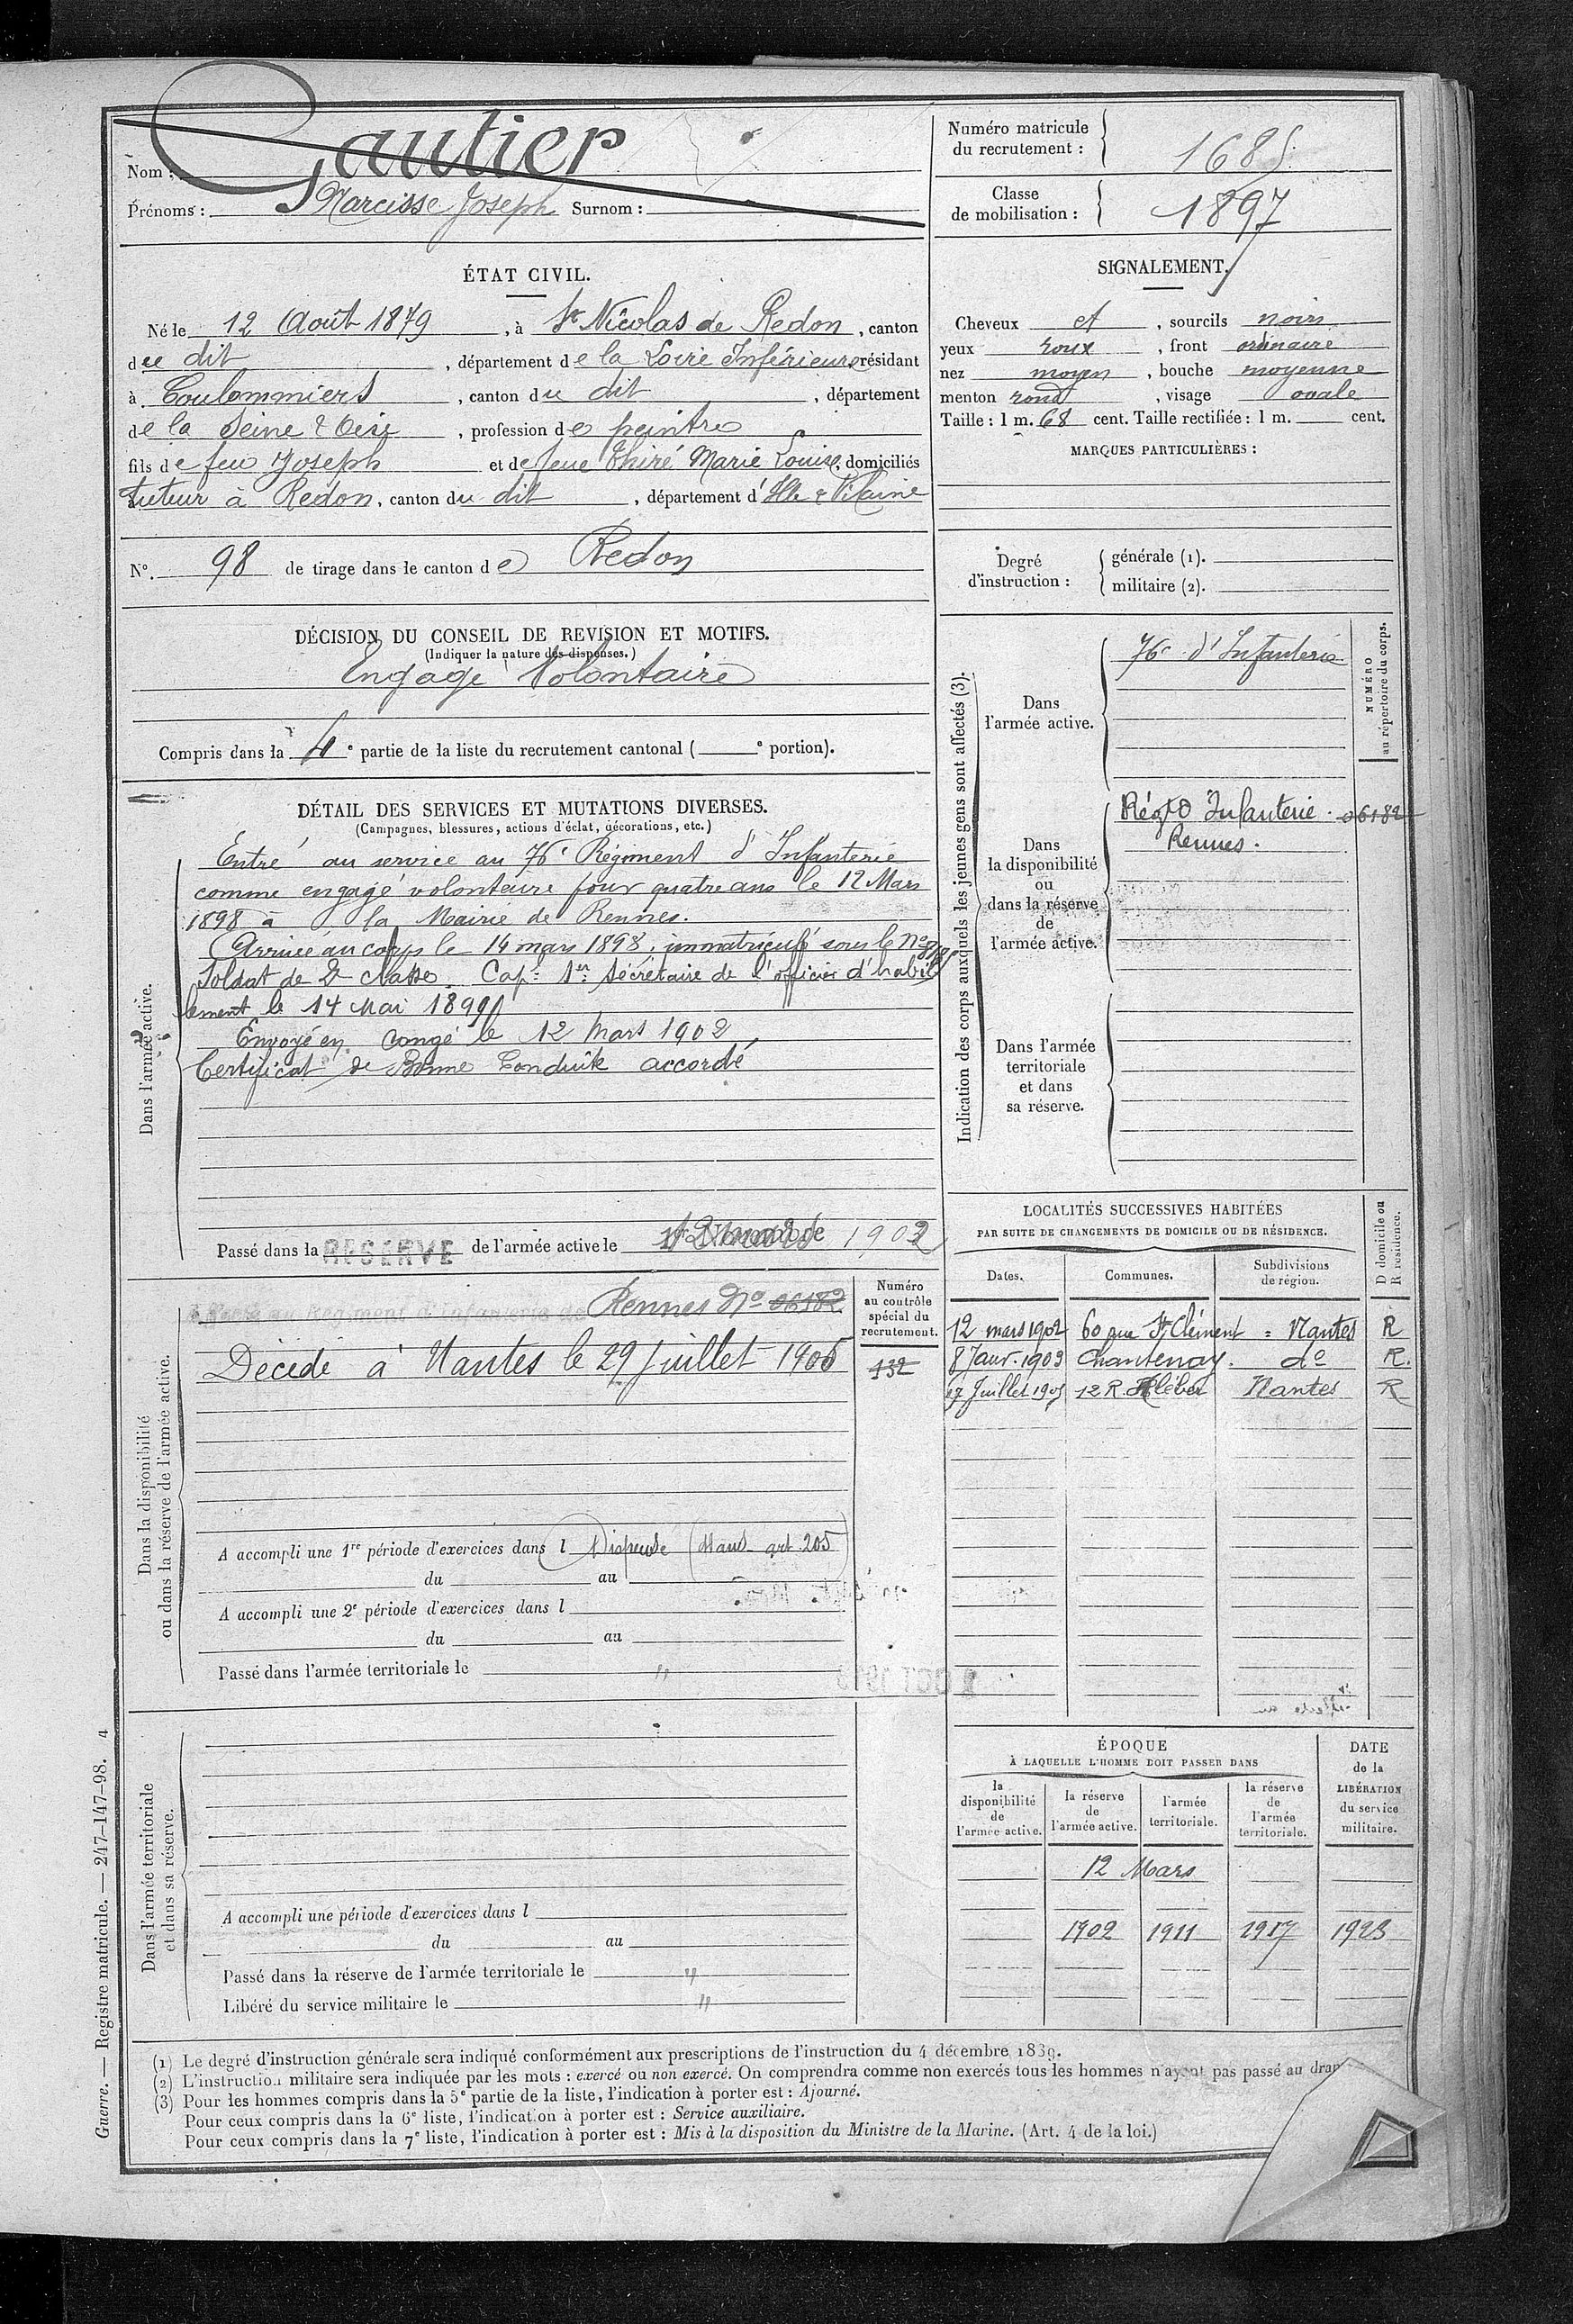 Nom : Gautier
Prénoms : Narcisse Joseph Surnom :
Numéro matricule du recrutement : 1685
Classe de mobilisation : 1897
ÉTAT CIVIL.
Né le 12 Août 1879, à St Nicolas de Redon, canton
du dit, département de la Loire Inférieure résidant
à Coulommiers, canton du dit, département
de la Seine & Oise, profession de peintre
fils de feu Joseph et de feue Thiré Marie Louise, domiciliés
tuteur à Redon, canton du dit, département d'Ille & Vilaine
N°. 98 de tirage dans le canton de Redon
SIGNALEMENT.
Cheveux et, sourcils noirs
yeux roux, front ordinaire
nez moyen, bouche moyenne
menton rond, visage ovale
Taille : 1 m. 68 cent. Taille rectifiée : 1 m. cent.
MARQUES PARTICULIÈRES :
Degré d'instruction : générale (1).
militaire (2).
DÉCISION DU CONSEIL DE REVISION ET MOTIFS.
(Indiquer la nature des dispenses.)
Engagé Volontaire
Compris dans la 4e partie de la liste du recrutement cantonal ( e portion).
DÉTAIL DES SERVICES ET MUTATIONS DIVERSES.
(Campagnes, blessures, actions d'éclat, décorations, etc.)
Dans l'armée active.
Entré au service au 76e Régiment d'Infanterie
comme engagé volontaire pour quatre ans le 12 Mars
1898 à la Mairie de Rennes.
Arrivé au corps le 14 mars 1898, immatriculé sous le N°
Soldat de 2e classe. Cap: 1er Secrétaire de l'officier d'habil
lement le 14 Mai 1899
Envoyé en congé le 12 Mars 1902
Certificat de Bonne Conduite accordé
Passé dans la RÉSERVE de l'armée active le 1902
Indication des corps auxquels les jeunes gens sont affectés (3).
NUMÉRO au répertoire du corps.
Dans l'armée active.
76e d'Infanterie
Dans la disponibilité ou dans la réserve de l'armée active.
Régt D'Infanterie. 06182
Rennes.
Dans l'armée territoriale et dans sa réserve.
Dans la disponibilité ou dans la réserve de l'armée active.
Numéro au contrôle spécial du recrutement.
au Régiment d'infanterie de Rennes N° 06182
Décédé à Nantes le 29 Juillet 1906
132
A accompli une 1re période d'exercices dans l Dispensé art 205
du au
A accompli une 2e période d'exercices dans l
du au
Passé dans l'armée territoriale le "
LOCALITÉS SUCCESSIVES HABITÉES
PAR SUITE DE CHANGEMENTS DE DOMICILE OU DE RÉSIDENCE.
D domicile ou R résidence.
Dates. Communes. Subdivisions de région.
12 mars 1902 60 rue St Clément = Nantes R
8 Janv. 1903 Chantenay. do R.
17 Juillet 1905 12 R. Kléber Nantes R
Dans l'armée territoriale et dans sa réserve.
A accompli une période d'exercices dans l
du au
Passé dans la réserve de l'armée territoriale le "
Libéré du service militaire le "
ÉPOQUE
À LAQUELLE L'HOMME DOIT PASSER DANS
DATE de la LIBÉRATION du service militaire.
la disponibilité de l'armée active. la réserve de l'armée active. l'armée territoriale. la réserve de l'armée territoriale.
12 Mars
1902 1911 1917 1923
(1) Le degré d'instruction générale sera indiqué conformément aux prescriptions de l'instruction du 4 décembre 1889.
(2) L'instruction militaire sera indiquée par les mots : exercé ou non exercé. On comprendra comme non exercés tous les hommes n'ayant pas passé au drap
(3) Pour les hommes compris dans la 5e partie de la liste, l'indication à porter est : Ajourné.
Pour ceux compris dans la 6e liste, l'indication à porter est : Service auxiliaire.
Pour ceux compris dans la 7e liste, l'indication à porter est : Mis à la disposition du Ministre de la Marine. (Art. 4 de la loi.)
Guerre. — Registre matricule. — 247-147-98. 4